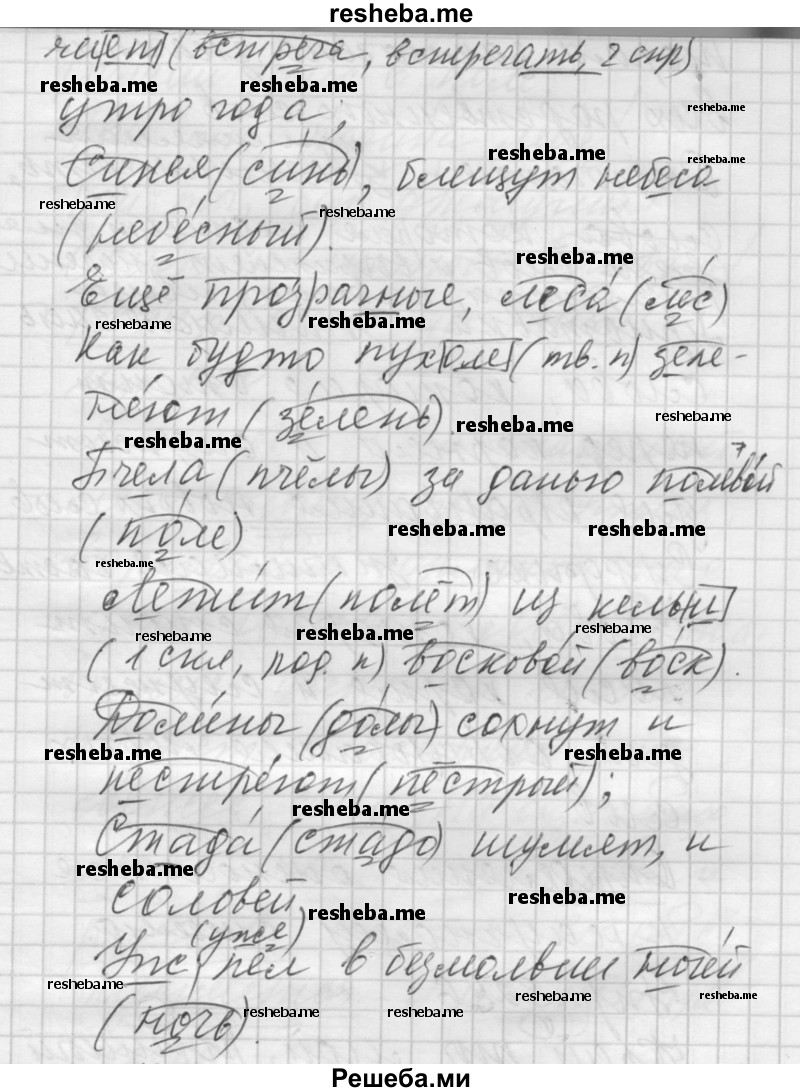 resheba.me
чает (встреча, встречать, 2 спр)
resheba.me resheba.me resheba.me
утро года;
resheba.me resheba.me
Синея (синь), блещут небеса
resheba.me resheba.me
(небесный).
resheba.me
Ещё прозрачные, леса (лес)
resheba.me resheba.me
Как будто пухом (тв. п) зеле-
неют (зелень).
resheba.me resheba.me resheba.me
Пчела (пчёлы) за данью полевой
resheba.me resheba.me
(поле)
resheba.me
Летит (полёт) из кельи
resheba.me resheba.me resheba.me
(1 скл, род. п) восковой (воск).
Долины (долы) сохнут и
resheba.me resheba.me
пестреют (пёстрый);
resheba.me
Стада (стадо) шумят, и
resheba.me
соловей
resheba.me resheba.me
(уже)
Уж пел в безмолвии ночей
resheba.me resheba.me resheba.me
(ночь).
resheba.me resheba.me
Решеба.ми